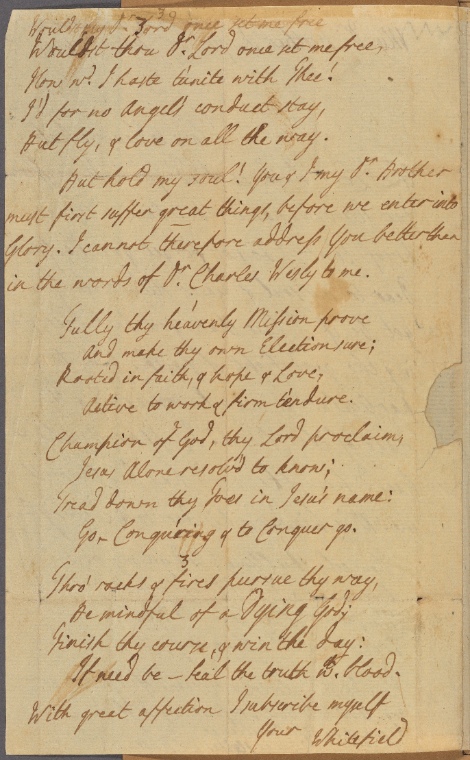 Wouldst thou Dr. Lord once set me free
Wouldst thou Dr. Lord once set me free,
How wd. I haste t'unite with Thee!
I'd for no Angel's conduct stay,
But fly, & love on all the way.
But hold my soul! You & I my Dr. Brother
must first suffer great things, before we enter into
Glory. I cannot therefore address You better than
in the words of Dr. Charles Wesly to me.
Fully thy heavenly Mission prove
And make thy own Election sure;
Rooted in faith, & hope & Love,
Active to work & firm t'endure.
Champion of God, thy Lord proclaim,
Jesus Alone resolv'd to know;
Tread down thy Foes in Jesu's name:
Go, Conquering & to Conquer go.
3
Thro' racks & fires pursue thy way,
Be mindful of a Dying God;
Finish thy course, & win the day:
If need be - seal the truth wth. blood.
With great affection I subscribe myself
Your Whitefield